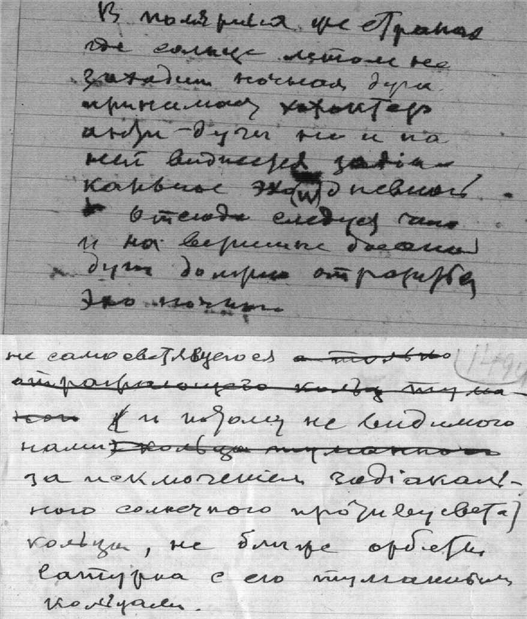 В полярных же странах
где солнце летом не
заходит ночная дуга
принимает характер
анти-дуги но и на
ней виднеется зодiа-
кальное эхо (и) дневной.
Отсюда следует что
и на вершине дневной
дуги должно отразиться
Эхо ночного
не самосветящегося а только
отражающего кольца тума-
ной и потому не видимого
нами кольца туманного
за исключением зодiакаль-
ного солнечного противусвета
кольца, не ближе орбиты
Сатурна с его туманными
кольцами.